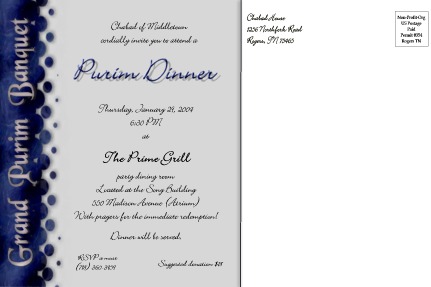 Grand Purim Banquet
Chabad of Middletown
cordially invite you to attend a
Purim Dinner
Thursday, January 28, 2004
6:30 PM
at
The Prime Grill
party dining room
Located at the Song Building
550 Madison Avenue (Atrium)
With prayers for the immediate redemption!
Dinner will be served.
RSVP a must
(718) 360-3409
Suggested donation $25
Chabad House
1256 Northfork Road
Rogers, TN 75465
Non-Profit-Org
US Postage
Paid
Rogers TN